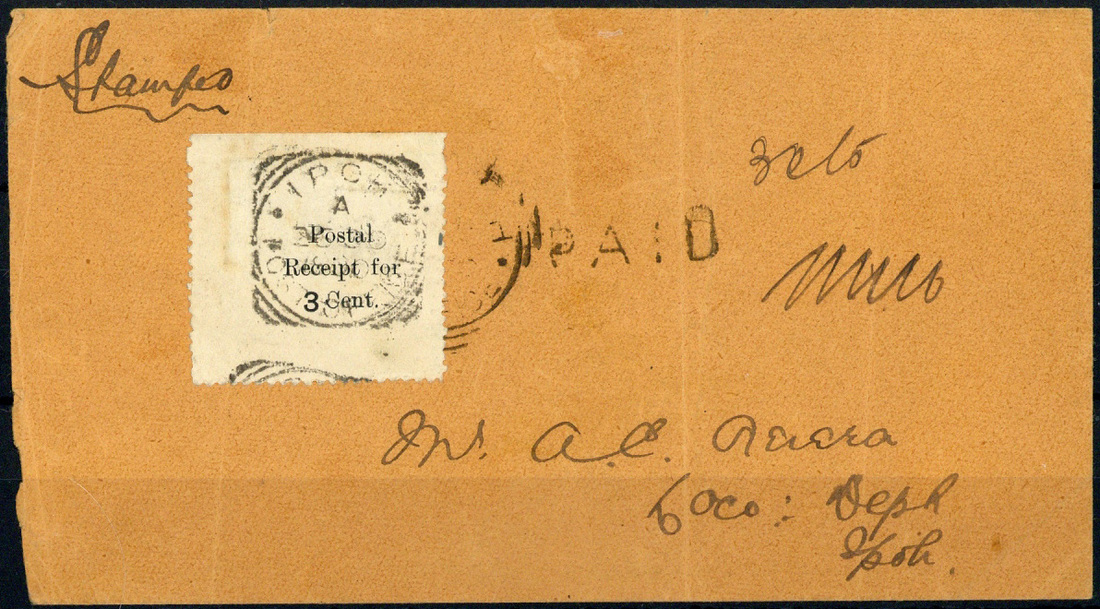 Stamped
IPOH
A
Postal
Receipt for
3 Cent.
PAID
3cts
Mr. A. C.
Loco: Dept
Ipoh.